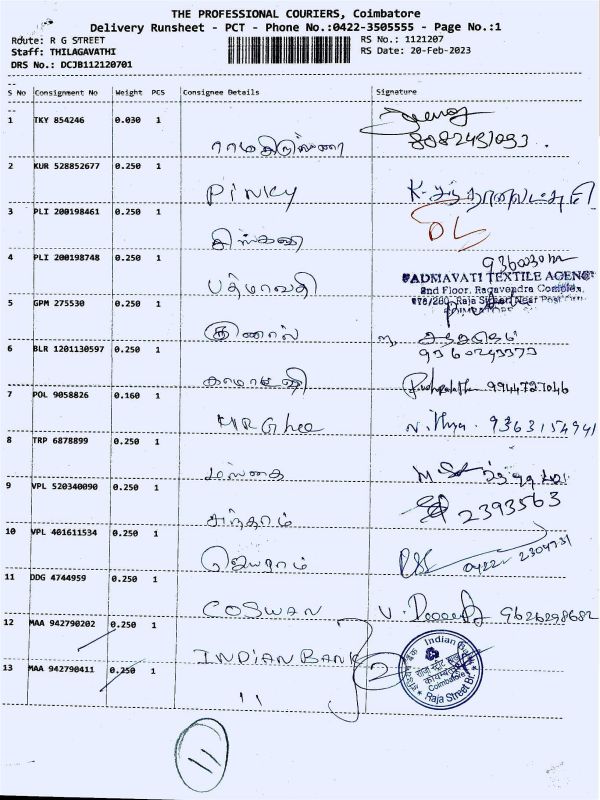 THE PROFESSIONAL COURIERS, Coimbatore
Delivery Runsheet - PCT - Phone No.:0422-3505555 - Page No.:1
Route: R G STREET RS No.: 1121207
Staff: THILAGAVATHI RS Date: 20-Feb-2023
DRS No.: DCJB112120701
S No Consignment No Weight PCS Consignee Details Signature
1 TKY 854246 0.030 1
8082431093.
2 KUR 528852677 0.250 1
PINKY
3 PLI 200198461 0.250 1
4 PLI 200198748 0.250 1
பத்மாவதி
PADMAVATI TEXTILE AGENCY
2nd Floor, Ragavendra Complex,
Raja Street, Near Post
5 GPM 275530 0.250 1
குணால்
6 BLR 1201130597 0.250 1
காமாட்சி 9944727046
7 POL 9058826 0.160 1
MR Ghee 9363154941
8 TRP 6878899 0.250 1
மங்கை
9 VPL 520340090 0.250 1
2393563
10 VPL 401611534 0.250 1
ஜெயராம் 0422 2304731
11 DDG 4744959 0.250 1
COSWAN 9626298682
12 MAA 942790202 0.250 1
INDIAN BANK 2
13 MAA 942790411 0.250 1
"
Indian Bank
राजा स्ट्रीट शाखा
कोयम्बत्तूर
Coimbatore
Raja Street Br.
11